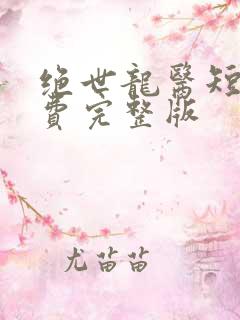 绝世龍醫短
費完整版
尤苗苗